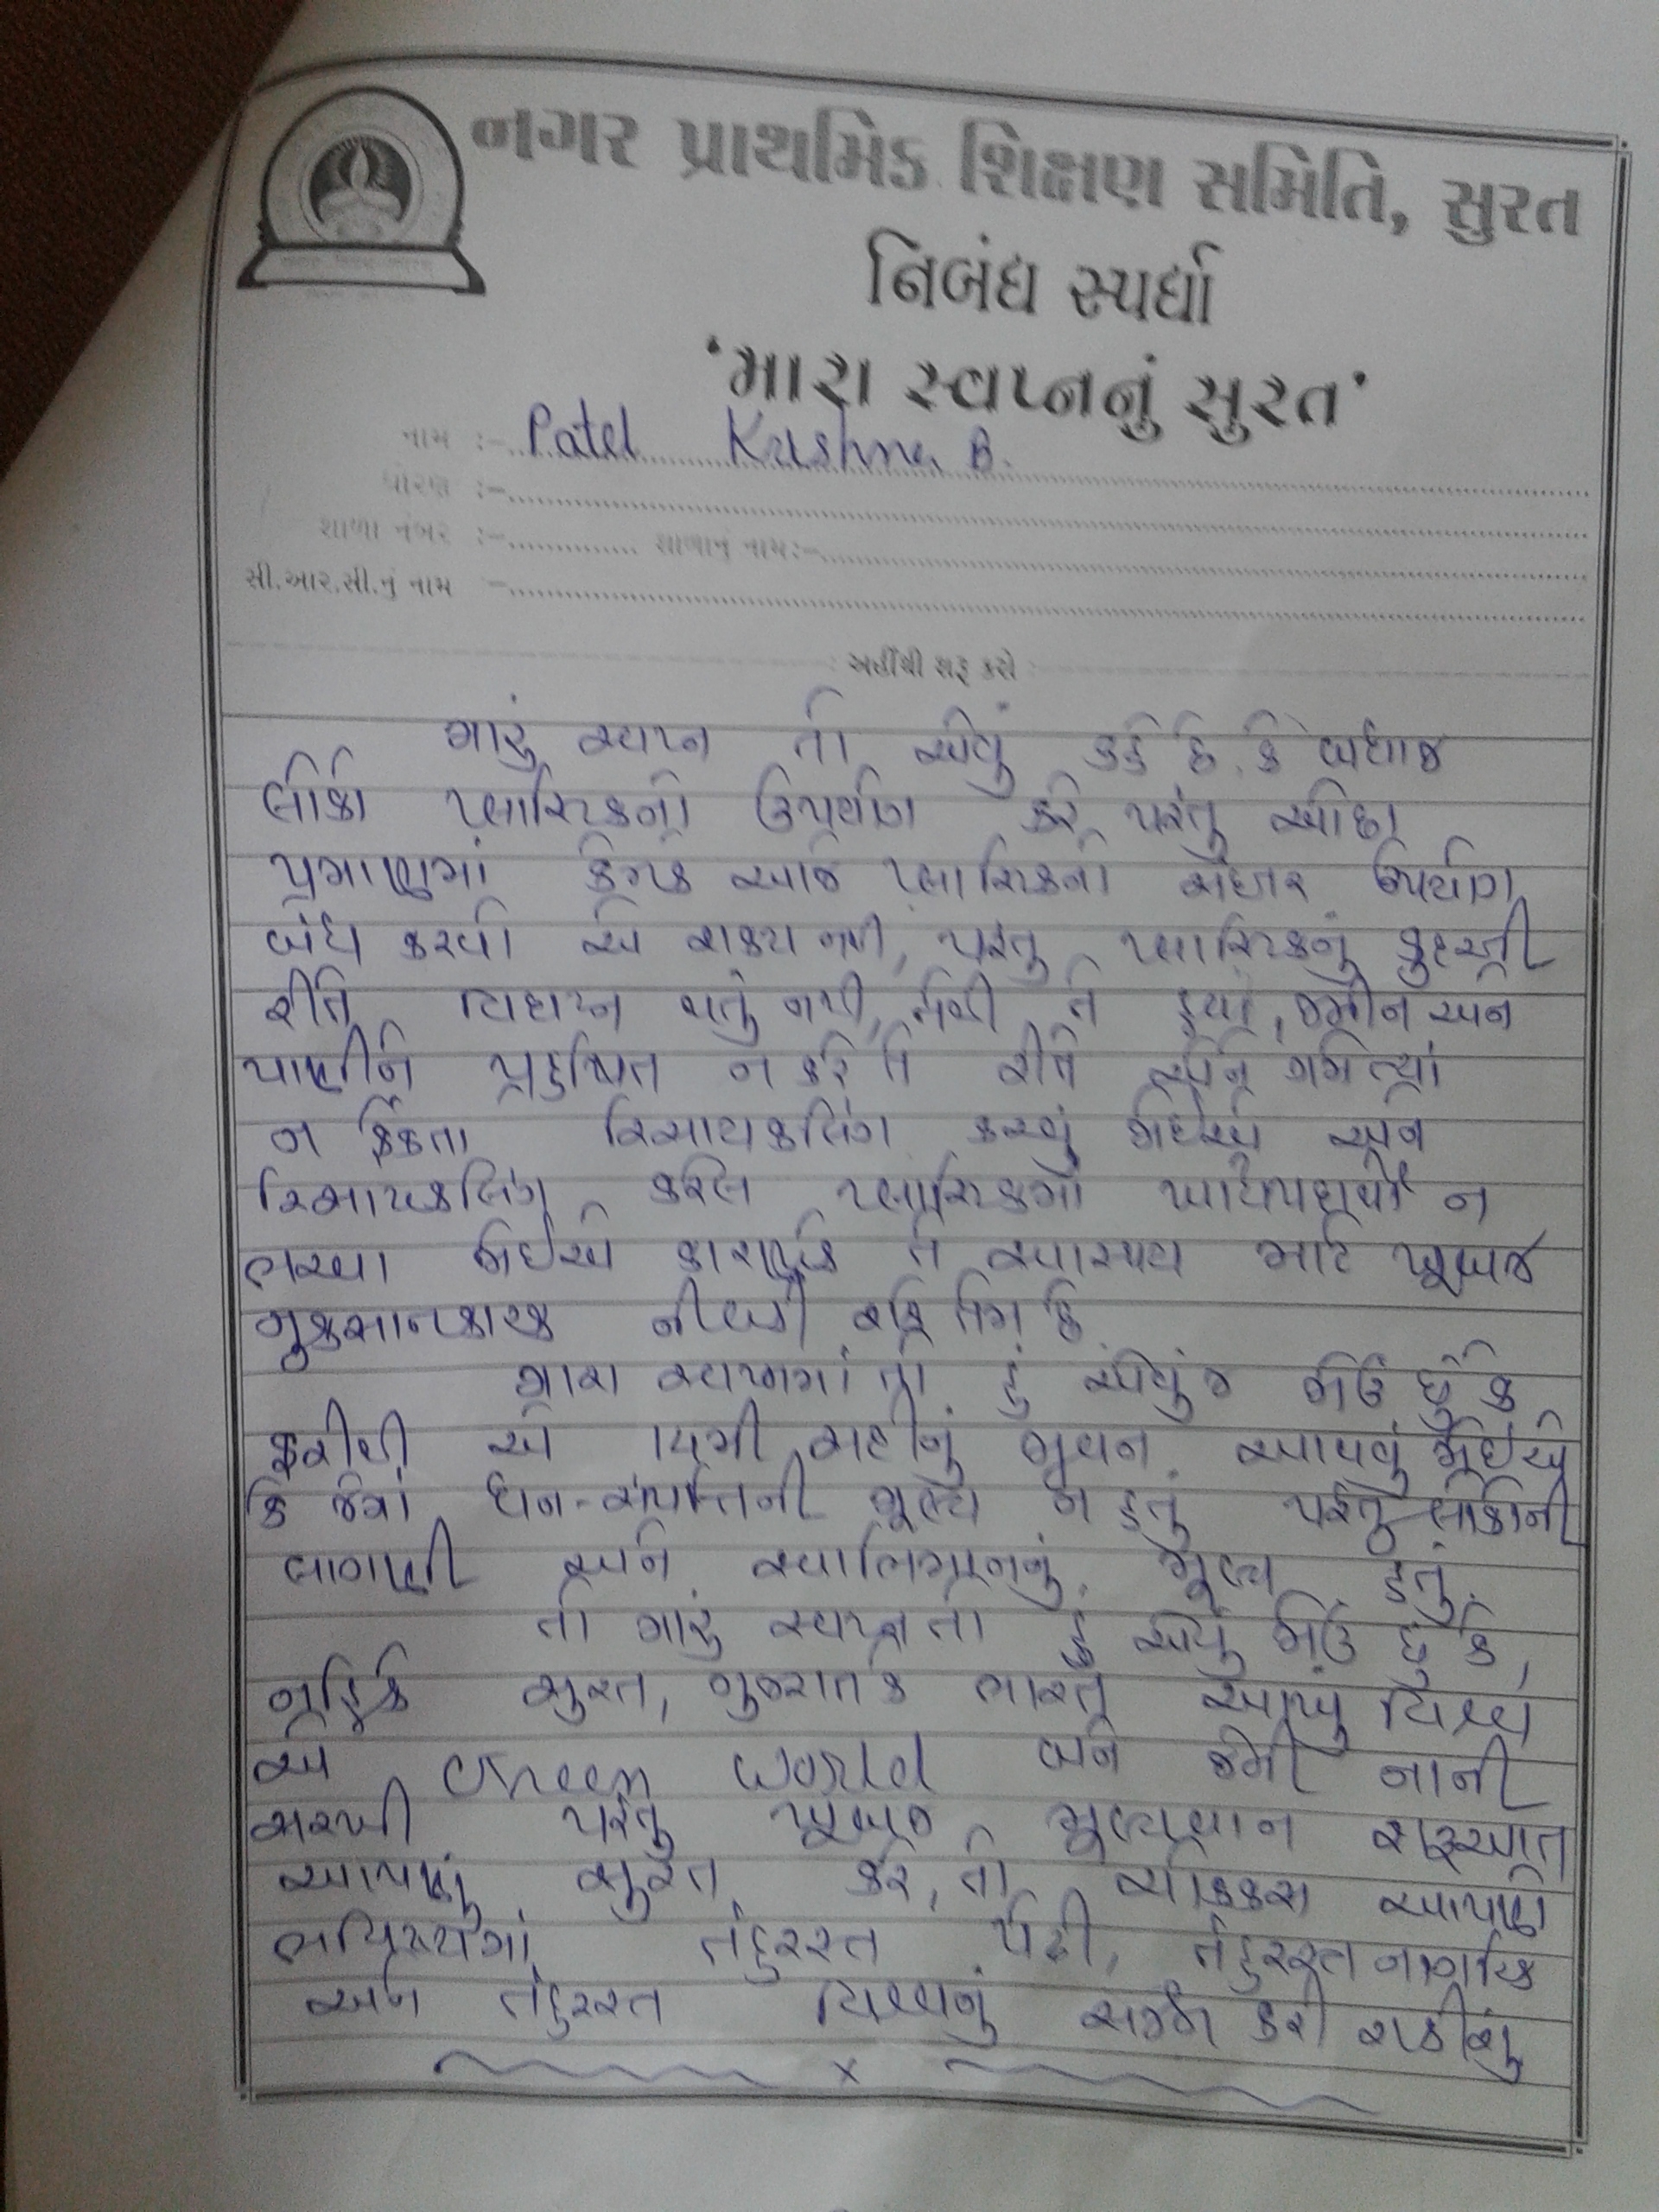 નગર પ્રાથમિક શિક્ષણ સમિતિ, સુરત
નિબંધ સ્પર્ધા
'મારા સ્વપ્નનું સુરત'
નામ :- Patel Krushna B.
ધોરણ :-
શાળા નંબર :- શાળાનું નામ:-
સી.આર.સી.નું નામ -
: અહીંથી શરૂ કરો :
મારું સ્વપ્ન તો એવું કહે છે. કે બધાજ
લોકો પ્લાસ્ટિકનો ઉપયોગ કરે પરંતુ ઓછા
પ્રમાણમાં કેમકે આજે પ્લાસ્ટિકનો સદંતર ઉપયોગ
બંધ કરવો એ શક્ય નથી, પરંતુ પ્લાસ્ટિકનું કુદરતી
રીતે વિઘટન થતું નથી, તેથી તે હવા, જમીન અને
પાણીને પ્રદુષિત ન કરે તે રીતે એને ગમે ત્યાં
ન ફેંકતા રિસાયકલિંગ કરવું જોઈએ અને
રિસાયકલિંગ કરેલ પ્લાસ્ટિકમાં ખાદ્યપદાર્થો ન
ભરવા જોઈએ કારણકે તે સ્વાસ્થ્ય માટે ખૂબજ
નુકસાનકારક નીવડી શકે તેમ છે.
મારા સ્વપ્નમાં તો હું એવુંજ જોઉં છું કે
ફરીથી એ મી સદીનું જીવન આપવું જોઈએ
કે જેમાં ધન-સંપત્તિની મૂલ્ય ન હતું પરંતુ લોકોની
લાગણી અને સ્વાભિમાનનું મૂલ્ય હતું.
તો મારું સ્વપ્ન તો હું એવું જોઉં છું કે,
નહિકે સુરત, ગુજરાત કે ભારત આખું વિશ્વ
એ Green World બને જેની નાની
સરખી પરંતુ ખૂબજ મૂલ્યવાન શરૂઆત
આપણું સુરત કરે, તો ચોક્કસ આપણે
ભવિષ્યમાં તંદુરસ્ત પેઢી, તંદુરસ્ત નાગરિક
અને તંદુરસ્ત વિશ્વનું સર્જન કરી શકીશું
x